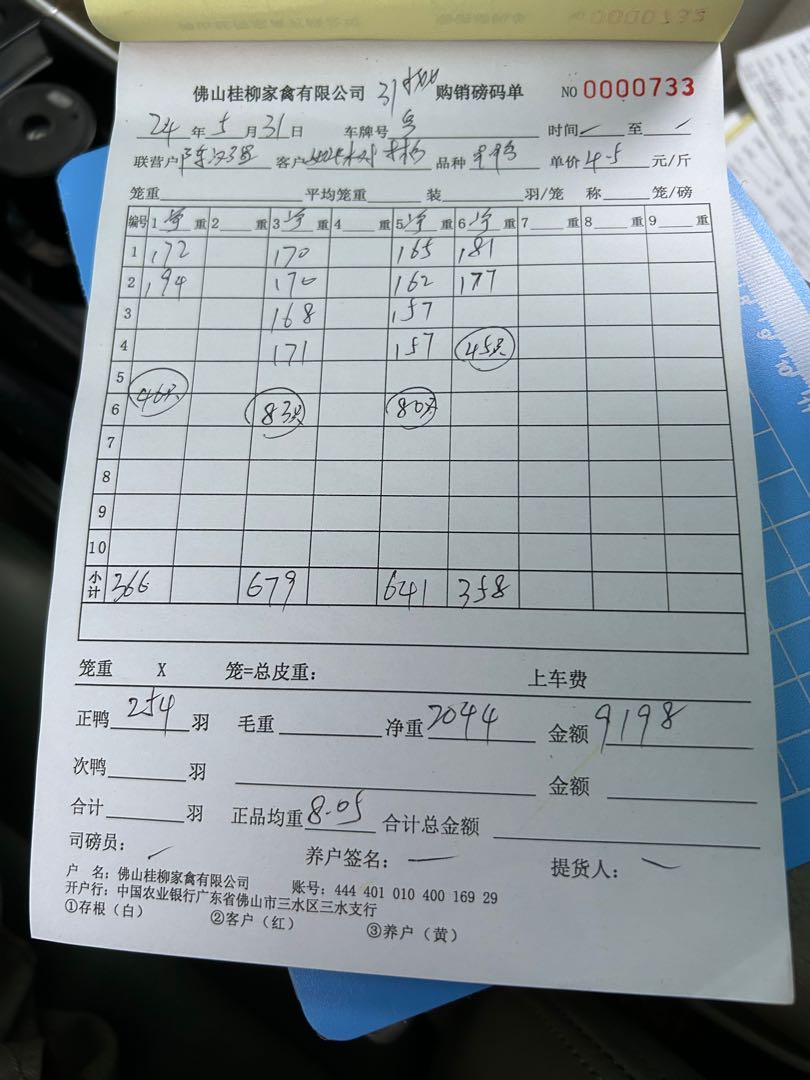 佛山桂柳家禽有限公司 31 购销磅码单 NO 0000733
24年5月31日 车牌号 时间 至
联营户 客户 品种 单价4.5元/斤
笼重 平均笼重 装 羽/笼 称 笼/磅
编号 1 重 2 重 3 重 4 重 5 重 6 重 7 重 8 重 9 重
1 172 170 165 181
2 194 170 162 177
3 168 157
4 171 157 45只
5 46只
6 83只 80只
7
8
9
10
小计 366 679 641 358
笼重 X 笼=总皮重: 上车费
正鸭254羽 毛重 净重2044 金额9198
次鸭 羽 金额
合计 羽 正品均重8.05 合计总金额
司磅员: 养户签名: 提货人:
户 名:佛山桂柳家禽有限公司 账号:444 401 010 400 169 29
开户行:中国农业银行广东省佛山市三水区三水支行
①存根(白) ②客户(红) ③养户(黄)